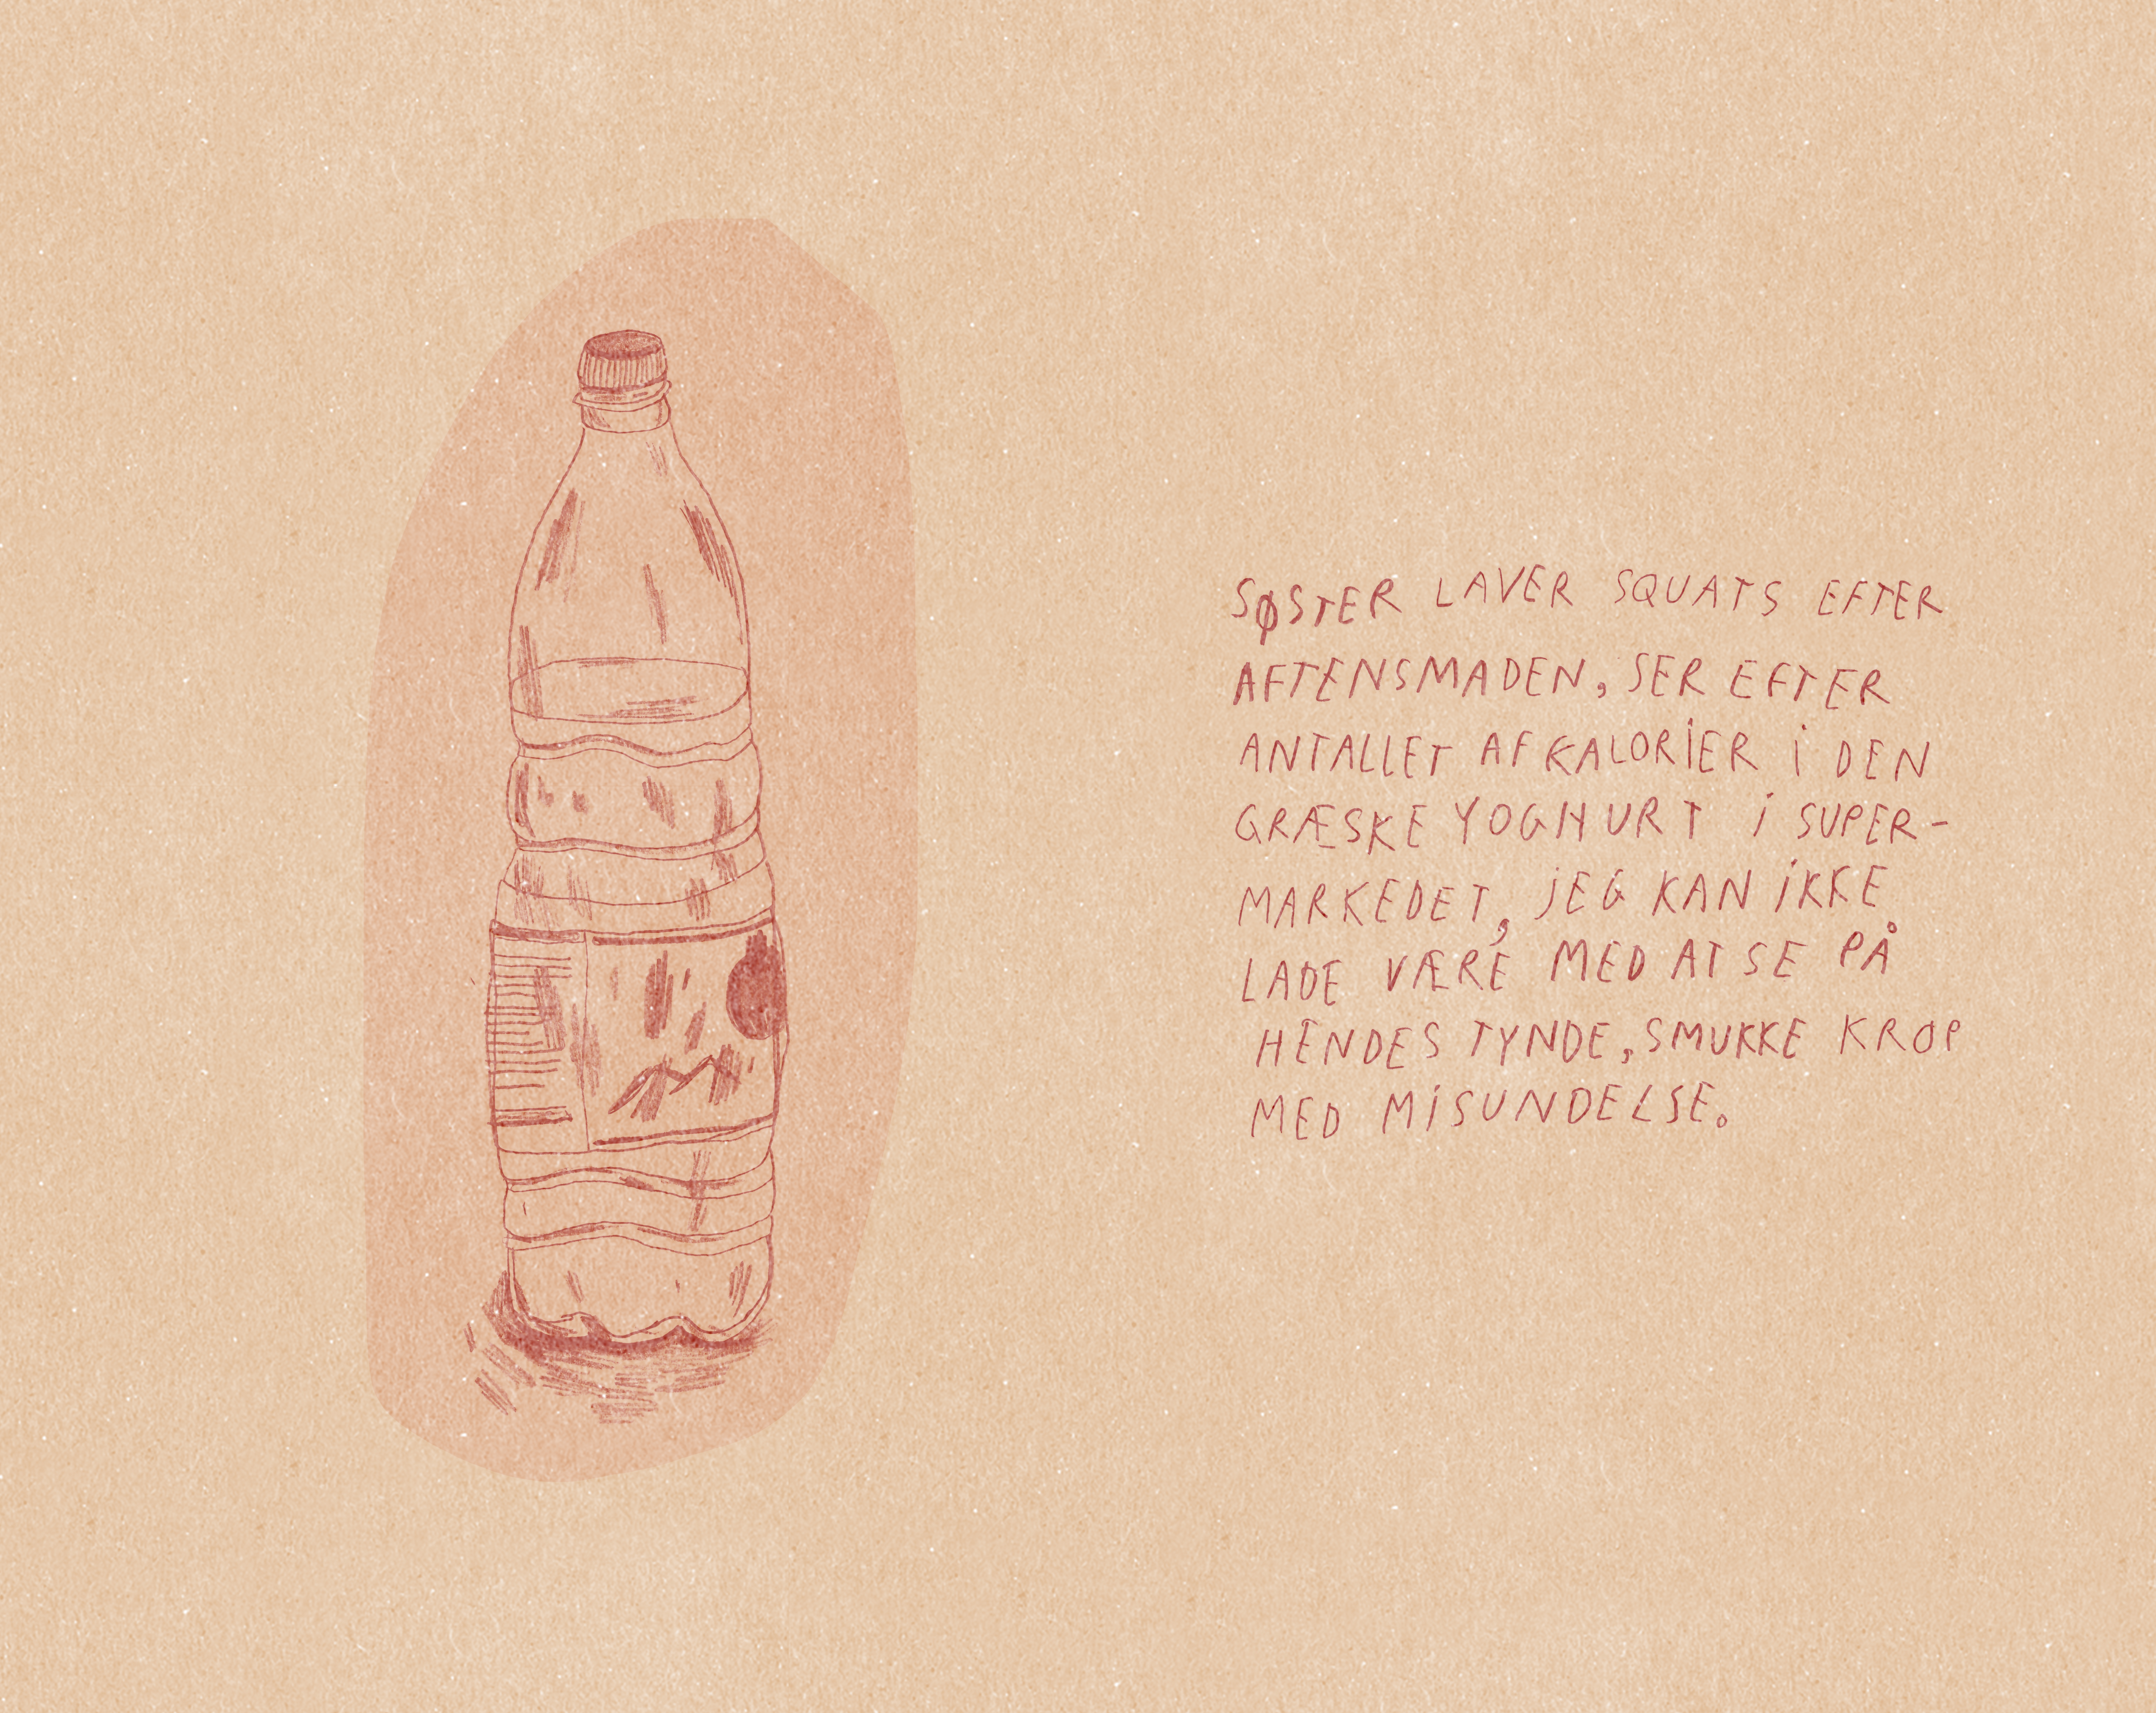 SØSTER LAVER SQUATS EFTER
AFTENSMADEN, SER EFTER
ANTALLET AF KALORIER I DEN
GRÆSKE YOGHURT I SUPER-
MARKEDET, JEG KAN IKKE
LADE VÆRE MED AT SE PÅ
HENDES TYNDE, SMUKKE KROP
MED MISUNDELSE.